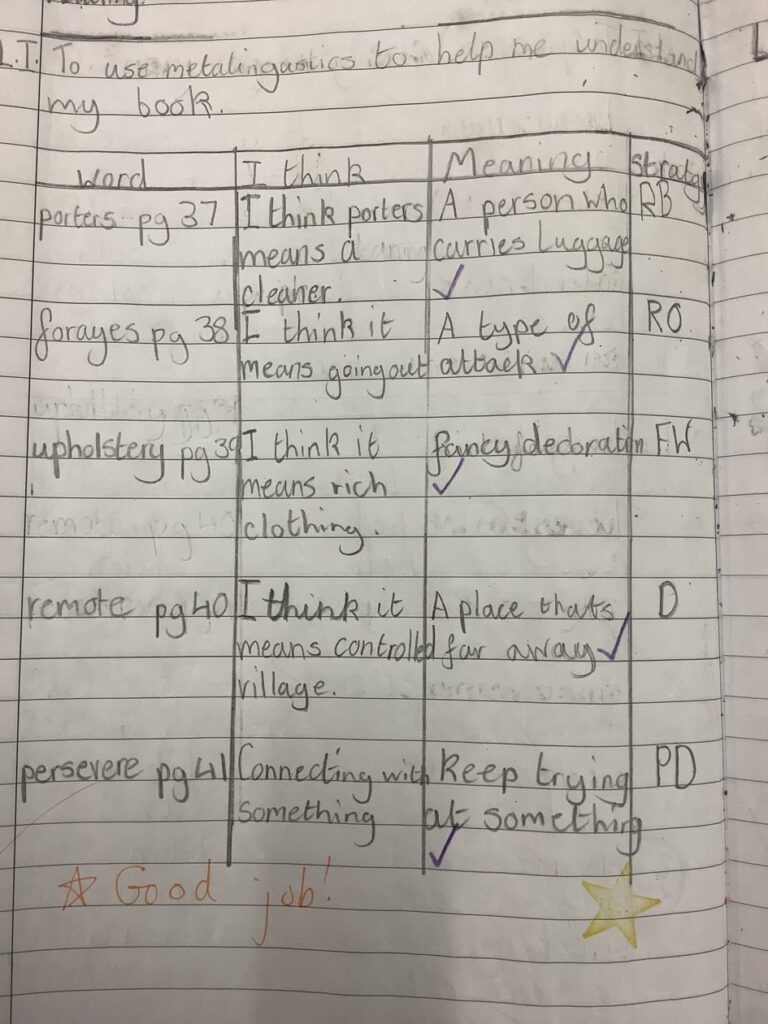 L.I. To use metalingustics to help me understand
my book.
word I think Meaning Stratgy
porters pg 37 I think porters A person who RB
means a carries Luggage
cleaner.
forayes pg 38 I think it A type of RO
means going out attack
upholstery pg 39 I think it fancy decoration FW
means rich
clothing.
remote pg 40 I think it A place thats D
means controlled far away
village.
persevere pg 41 Connecting with Keep trying PD
something at something
Good job!